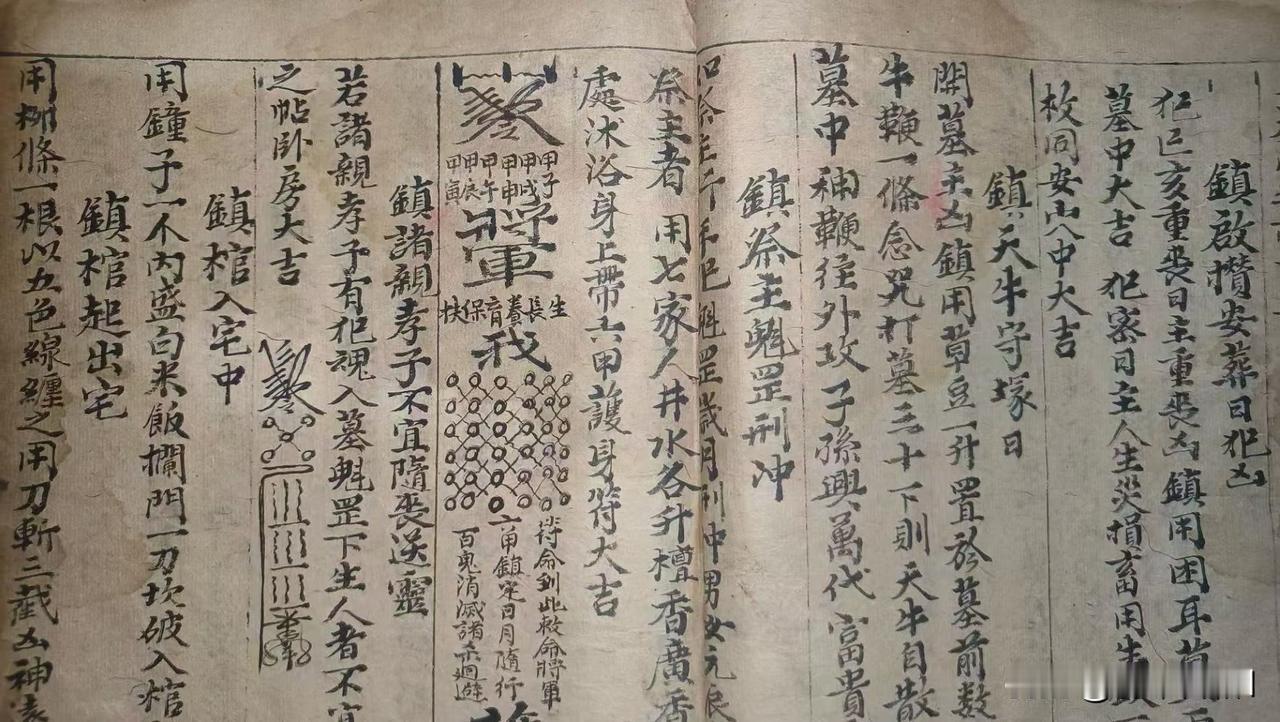 鎮啟攢安葬日犯凶
犯巳亥重喪日主重喪凶鎮用困耳草
墓中大吉 犯密日主人生災損畜用生
枚同安山八中大吉
鎮天牛守塚日
開墓主凶鎮用草豆一升置於墓前数
牛鞭一條念咒打墓三十下則天牛自散
墓中神鞭往外攻子孫興萬代富貴
鎮祭主魁罡刑冲
魁罡歲月刑冲男女
祭主者 用七家人井水各升檀香廣香
處沐浴身上帶六甲護身符大吉
甲子
甲戌
甲申
甲午
甲辰
甲寅
將軍
扶保育養長生
我
符命到此救命將軍
六甲鎮定日月隨行
百鬼消滅諸杀迴避
鎮諸親孝子不宜隨喪送靈
若諸親孝子有犯魂入墓魁罡下生人者不宜
之帖卧房大吉
鎮棺入宅中
用鐘子一不內盛白米飯攔門一刀坎破入棺
鎮棺起出宅
用柳條一根以五色線纏之用刀斬三截凶神